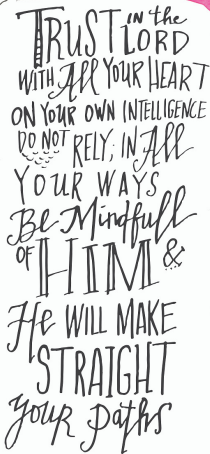 TRUST in the LORD
WITH All YOUR HEART
ON YOUR OWN INTELLIGENCE
DO NOT RELY; IN All
YOUR WAYS
Be Mindfull
OF HIM &
He WILL MAKE
STRAIGHT
your paths